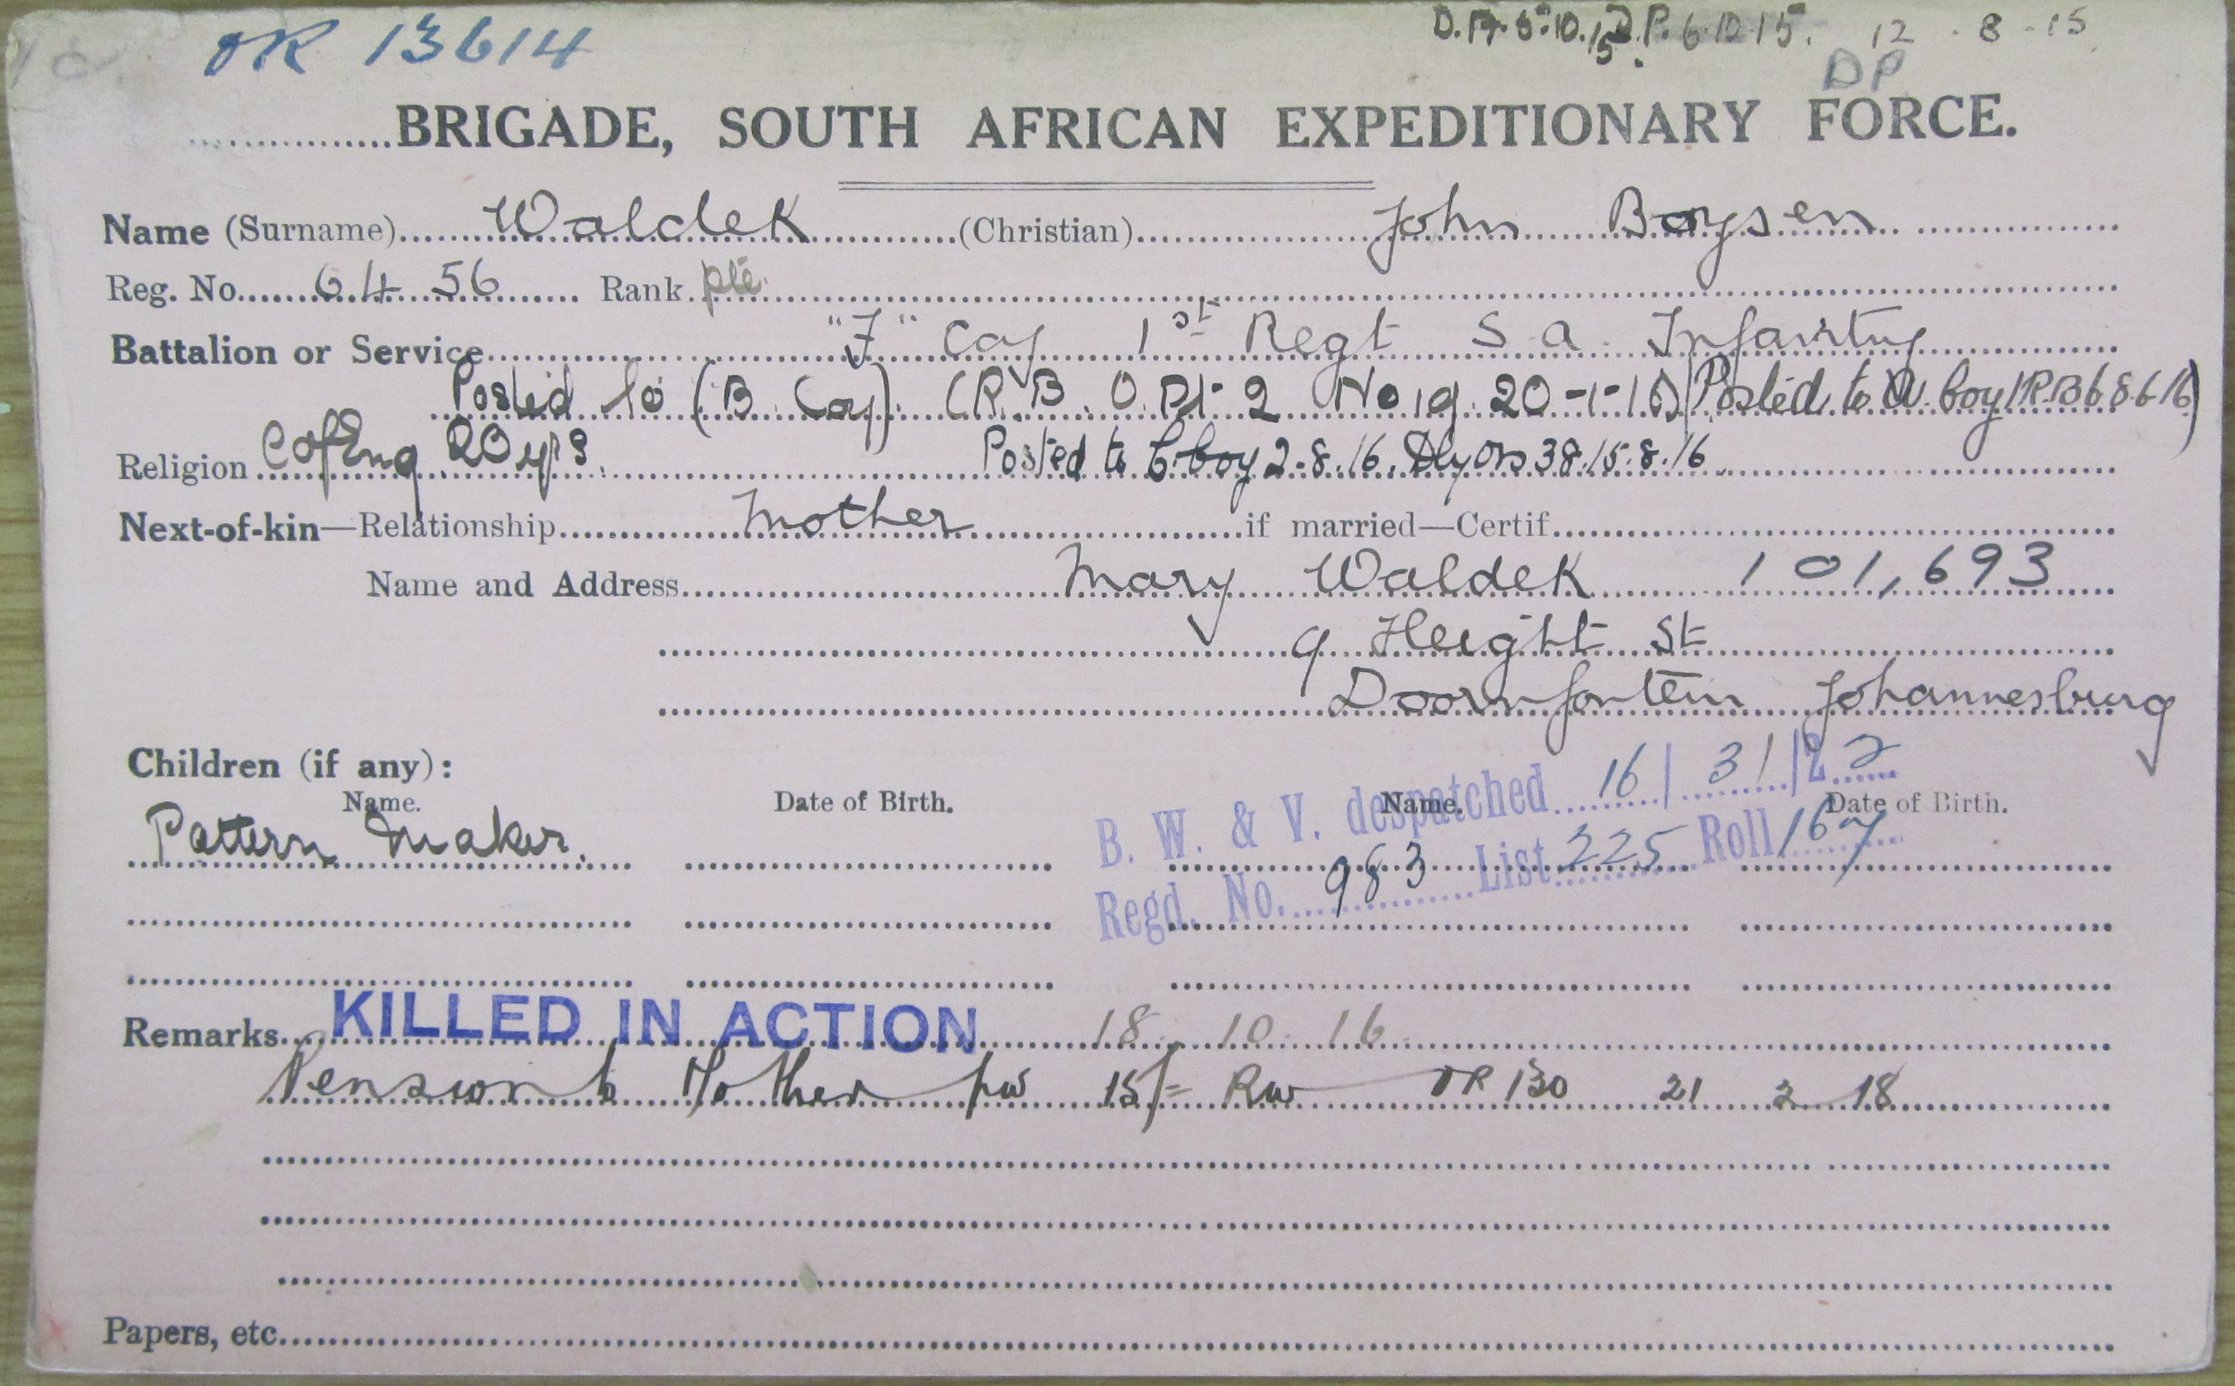 OR 13614 D.A. 5.10.15 D.P. 6.10.15. 12 . 8 . 15
DP
BRIGADE, SOUTH AFRICAN EXPEDITIONARY FORCE.
Name (Surname) Waldek (Christian) John Boysen
Reg. No. 6456 Rank pte
Battalion or Service "F" Coy 1st Regt S. A. Infantry
Posted to (B Coy) (R.B. O. Pt 2 No 19 20-1-16) (Posted to A Coy RB 68 6 16)
Religion C of Eng 20 yrs. Posted to C Coy 2.8.16. 38.15.8.16
Next-of-kin—Relationship Mother if married—Certif.
Name and Address Mary Waldek 101,693
9 Height St
Doornfontein Johannesburg
Children (if any):
Name. Date of Birth. Name. Date of Birth.
B. W. & V. despatched 16/31/22
Pattern Maker.
Regd. No. 983 List 225 Roll 167
Remarks KILLED IN ACTION 18. 10. 16
Pension to Mother pw 15/= Rw OR 130 21 2 18
Papers, etc.